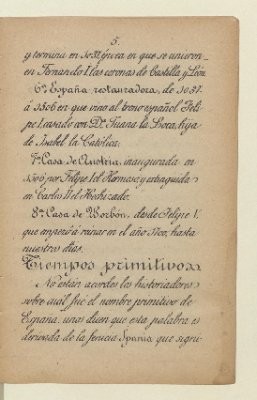 5.
y termina en 1037, época en que se unieron
en Fernando I. las coronas de Castilla y León
6ª España restauradora, de 1037
á 1506 en que vino al trono español Feli-
pe I, casado con Dª Juana la Loca, hija
de Isabel la Católica.
7ª Casa de Austria, inaugurada en
1506, por Felipe I el Hermoso, y extinguida
en Carlos II el Hechizado.
8ª Casa de Borbón, desde Felipe V,
que empezó á reinar en el año 1700, hasta
nuestros días.
Tiempos primitivos
No están acordes los historiadores
sobre cual fué el nombre primitivo de
España; unos dicen que esta palabra es
derivada de la fenicia Spania que signi-